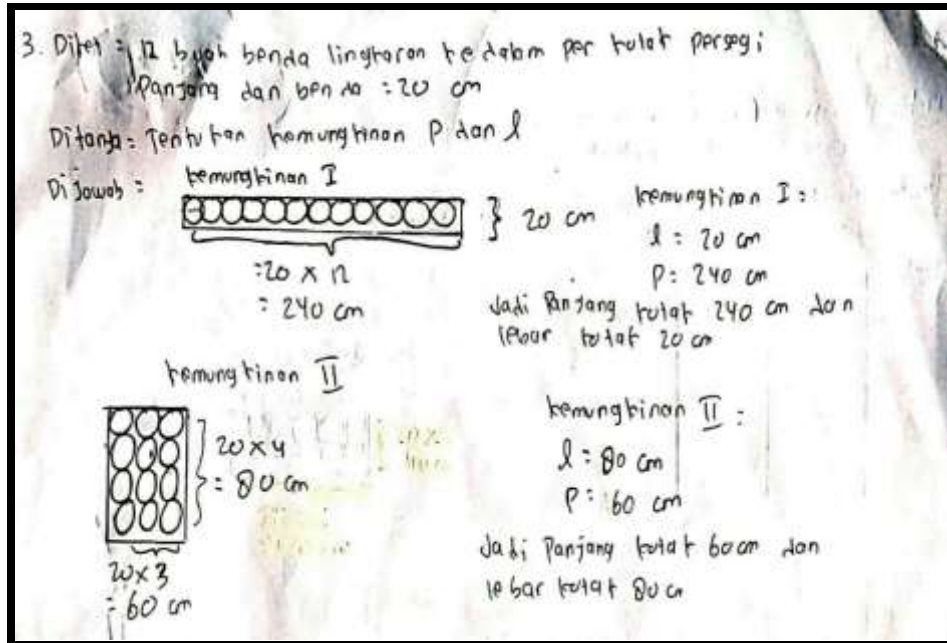 3. Diket = 12 buah benda lingkaran kedalam per kotak persegi
Panjang dan benda = 20 cm
Ditanya = Tentukan kemungkinan P dan l
Dijawab =
kemungkinan I
} 20 cm
= 20 x 12
= 240 cm
kemungkinan I :
l = 20 cm
P = 240 cm
Jadi Panjang kotak 240 cm dan
lebar kotak 20 cm
kemungkinan II
20 x 4
= 80 cm
20 x 3
= 60 cm
kemungkinan II :
l = 80 cm
P = 60 cm
Jadi Panjang kotak 60 cm dan
lebar kotak 80 cm